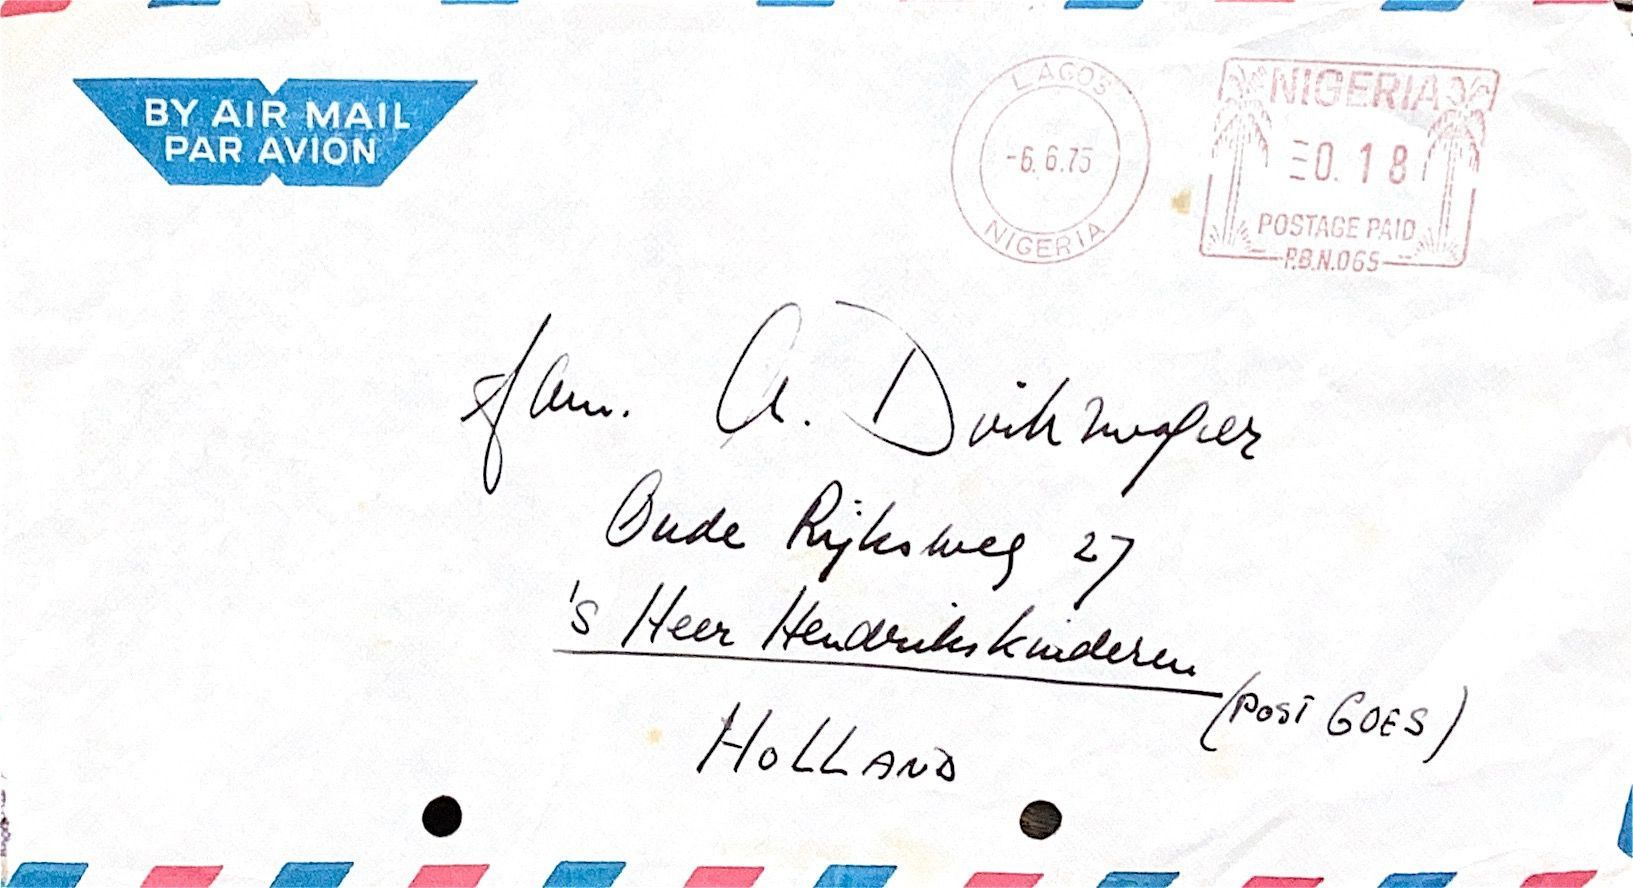 BY AIR MAIL
PAR AVION
LAGOS
-6.6.75
NIGERIA
NIGERIA
0.18
POSTAGE PAID
P.B.N.065
fam. A. Dirkzwager
Oude Rijksweg 27
's Heer Hendrikskinderen
(POST GOES)
HOLLAND